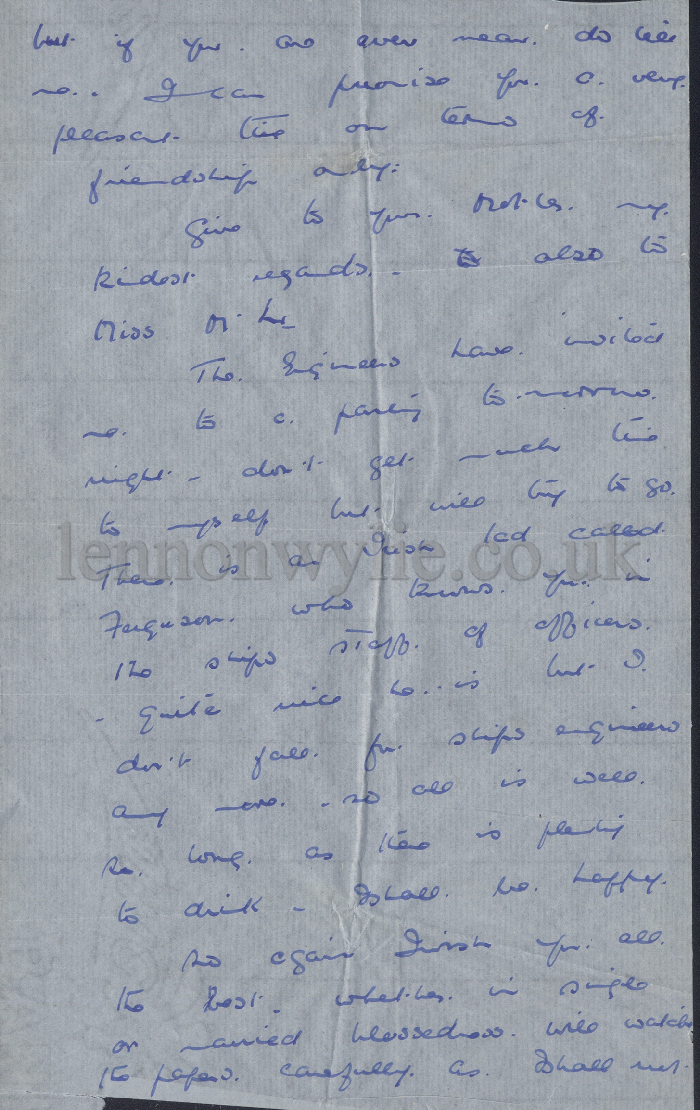 but if you are ever near do let
me. I can promise you a very
pleasant time on terms of
friendship only.
Give to your Mother my
kindest regards - also to
Miss
The Engineers have invited
me to a party to-morrow
night - don't get much time
to myself but will try to go.
There is an Irish lad called
lennonwylie.co.uk
Ferguson who knows you in
the ships staff of officers.
- quite nice he is but I
don't fall for ships engineers
any more - so all is well.
So long as there is plenty
to drink - I shall be happy.
So again I wish you all
the best. whether in single
or married blessedness. will watch
the papers carefully as I shall not